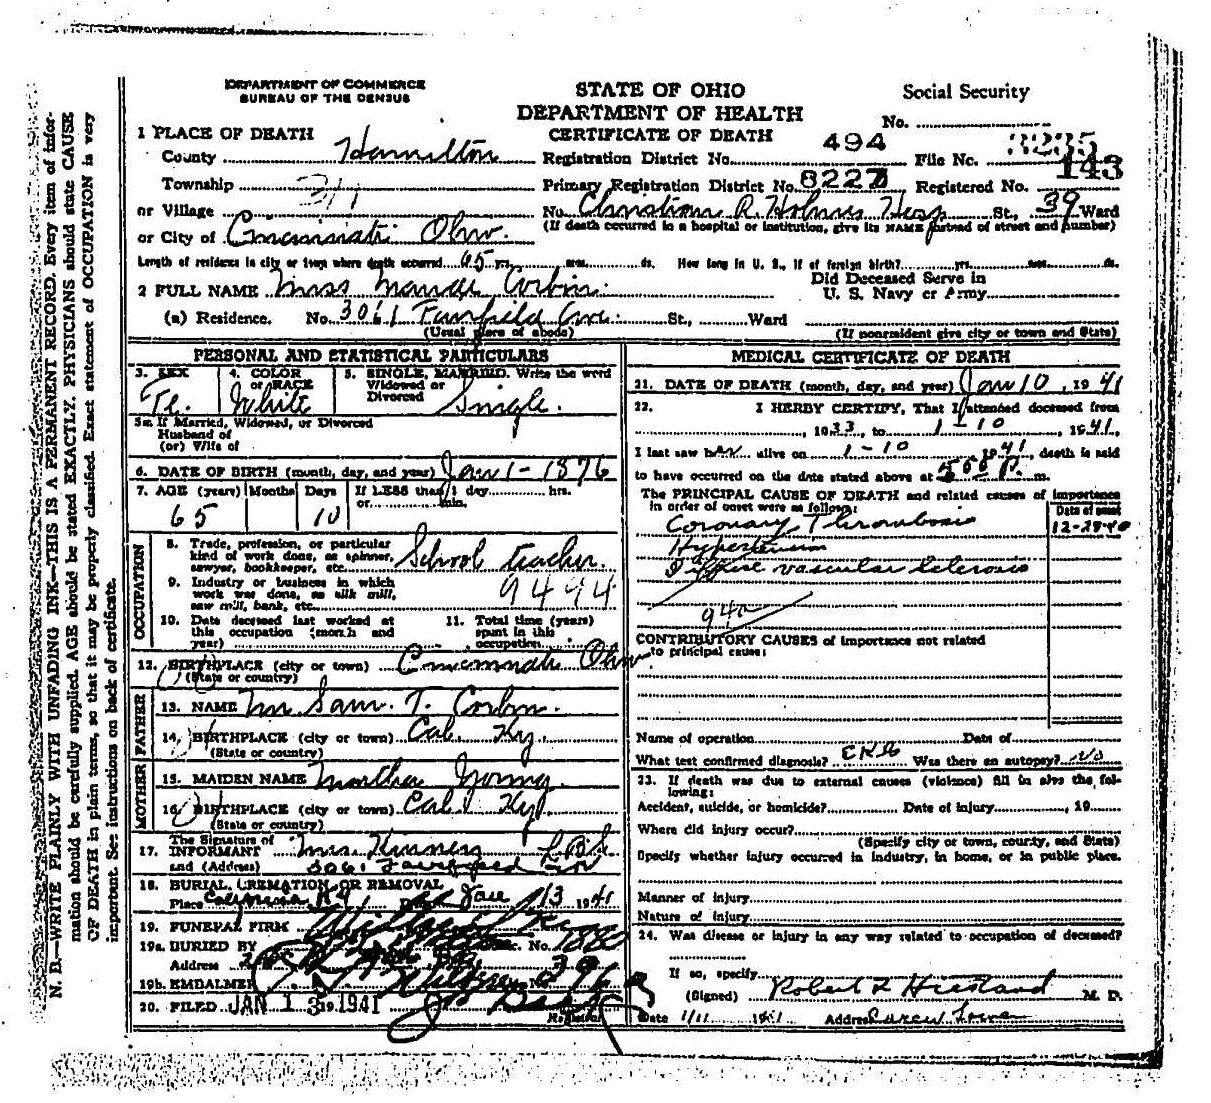 DEPARTMENT OF COMMERCE
BUREAU OF THE CENSUS
STATE OF OHIO
DEPARTMENT OF HEALTH
CERTIFICATE OF DEATH
Social Security
No.
N. B.—WRITE PLAINLY WITH UNFADING INK—THIS IS A PERMANENT RECORD. Every item of infor-
mation should be carefully supplied. AGE should be stated EXACTLY. PHYSICIANS should state CAUSE
OF DEATH in plain terms, so that it may be properly classified. Exact statement of OCCUPATION is very
important. See instructions on back of certificate.
1 PLACE OF DEATH
County Hamilton
Registration District No. 494 File No. 3235
Township
Primary Registration District No. 8227 Registered No. 143
or Village
No. Christian R. Holmes Hosp St., 39 Ward
(If death occurred in a hospital or institution, give its NAME instead of street and number)
or City of Cincinnati Ohio.
Length of residence in city or town where death occurred 65 yrs. mos. ds. How long in U. S., if of foreign birth? yrs. mos. ds.
2 FULL NAME Miss Maude Corbin.
Did Deceased Serve in
U. S. Navy or Army
(a) Residence. No. 3061 Fairfield Ave. St., Ward
(Usual place of abode)
(If nonresident give city or town and State)
PERSONAL AND STATISTICAL PARTICULARS
3. SEX Fe.
4. COLOR or RACE White
5. SINGLE, MARRIED. Write the word
Widowed or
Divorced Single.
5a. If Married, Widowed, or Divorced
Husband of
(or) Wife of
6. DATE OF BIRTH (month, day, and year) Jan 1 - 1876
7. AGE (years) Months Days If LESS than 1 day hrs.
or min.
65 10
OCCUPATION
8. Trade, profession, or particular
kind of work done, as spinner,
sawyer, bookkeeper, etc. School teacher.
9. Industry or business in which
work was done, as silk mill,
saw mill, bank, etc. 9494
10. Date deceased last worked at
this occupation (month and
year)
11. Total time (years)
spent in this
occupation
12. BIRTHPLACE (city or town) Cincinnati Ohio
(State or country)
FATHER
13. NAME Mr Sam. T. Corbin.
14. BIRTHPLACE (city or town) Cal. Ky.
(State or country)
MOTHER
15. MAIDEN NAME Martha Young
16. BIRTHPLACE (city or town) Cal. Ky
(State or country)
17. The Signature of
INFORMANT Mrs.
and (Address)
18. BURIAL, CREMATION OR REMOVAL
Place Ky 13 1941
19. FUNERAL FIRM
19a. BURIED BY No. 1880
Address
19b. EMBALMER
20. FILED JAN 13 1941
Registrar
MEDICAL CERTIFICATE OF DEATH
21. DATE OF DEATH (month, day, and year) Jan 10, 1941
22. I HERBY CERTIFY, That I attended deceased from
, 1933, to 1-10, 1941,
I last saw her alive on 1-10 1941, death is said
to have occurred on the date stated above at m.
The PRINCIPAL CAUSE OF DEATH and related causes of importance
in order of onset were as follows:
Date of onset
Coronary Thrombosis 12-28-40
Hypertension
Diffuse vascular Sclerosis
94a
CONTRIBUTORY CAUSES of importance not related
to principal cause:
Name of operation Date of
What test confirmed diagnosis? EKG Was there an autopsy? No
23. If death was due to external causes (violence) fill in also the fol-
lowing:
Accident, suicide, or homicide? Date of injury , 19
Where did injury occur?
(Specify city or town, county, and State)
Specify whether injury occurred in industry, in home, or in public place.
Manner of injury
Nature of injury
24. Was disease or injury in any way related to occupation of deceased?
If so, specify
(Signed) Robert L Hiestand M. D.
Date 1/11 1941 Address